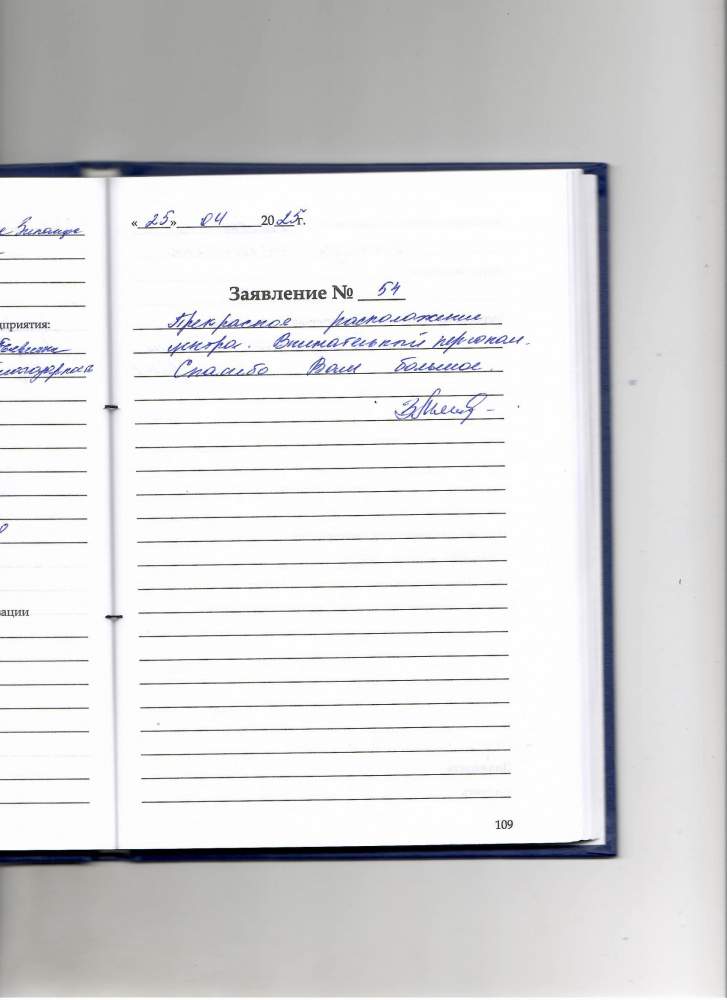 дприятия:
зации
« 25 » 04 2025г.
Заявление № 54
Прекрасное расположение
центра. Внимательный персонал.
Спасибо Вам большое.
109